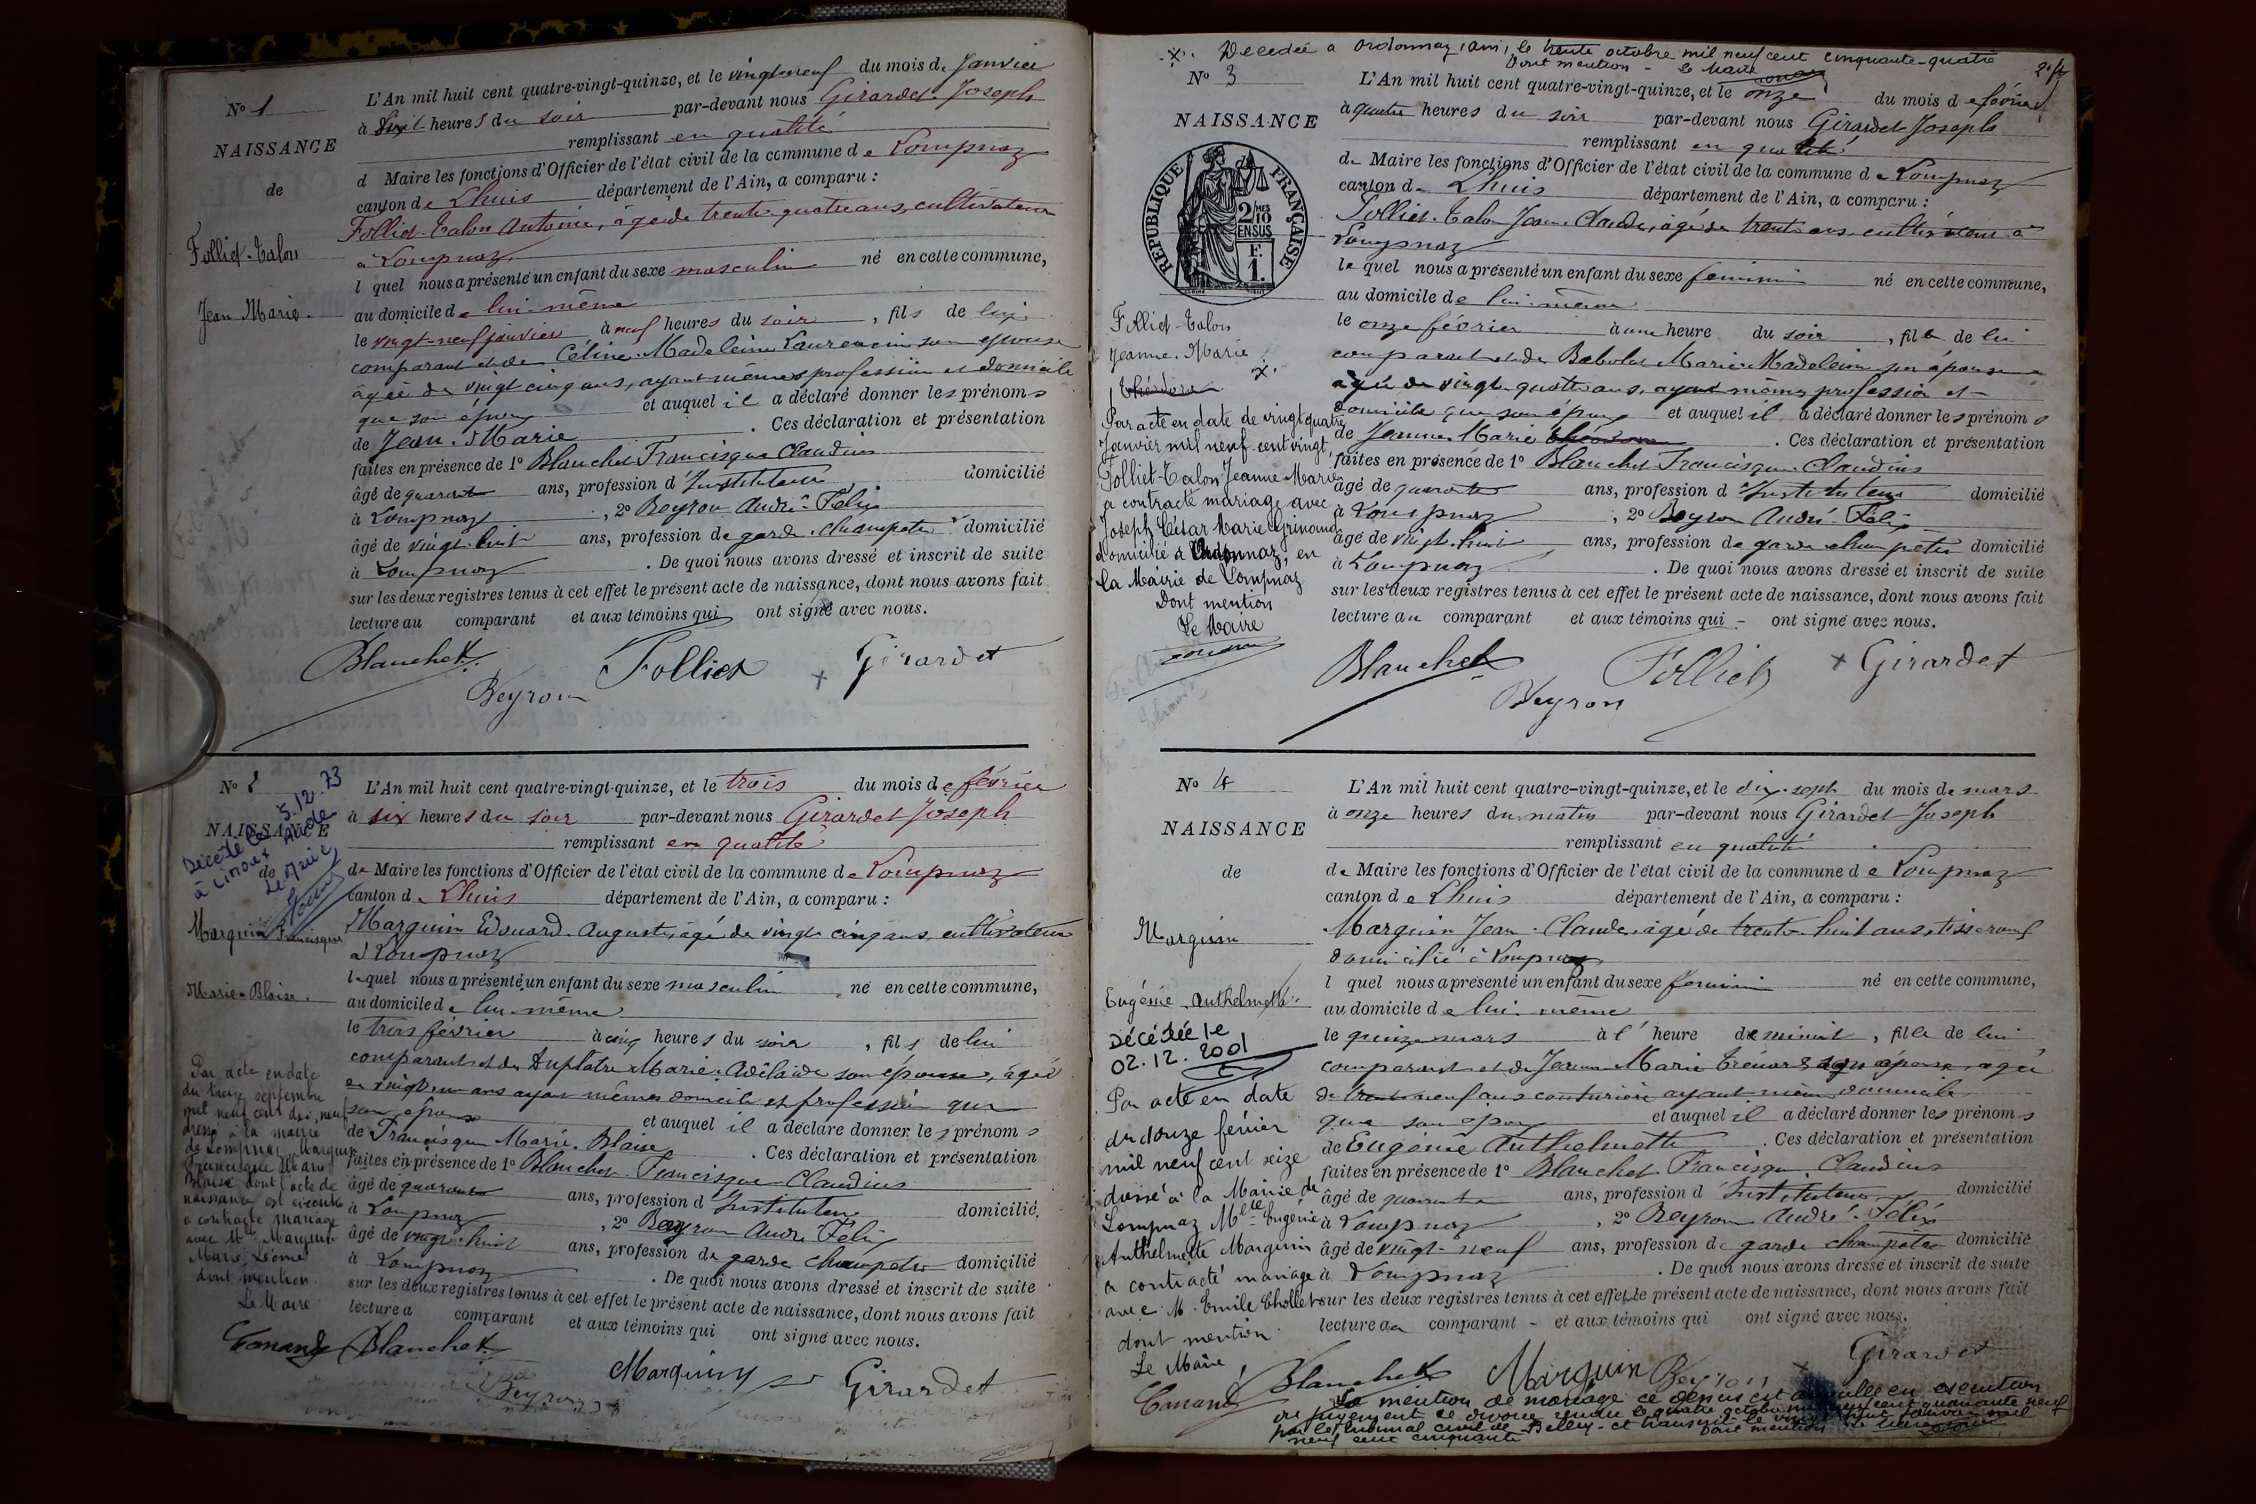 N° 1
NAISSANCE
de
Folliet-Talon
Jean Marie
L'An mil huit cent quatre-vingt-quinze, et le vingt neuf du mois de Janvier
à heures du soir par-devant nous Girardet Joseph
remplissant en qualité
d Maire les fonctions d'Officier de l'état civil de la commune de Lompnaz
canton de Lhuis département de l'Ain, a comparu :
Folliet-Talon Antoine, âgé de trente quatre ans, cultivateur
à Lompnaz
l quel nous a présenté un enfant du sexe masculin né en cette commune,
au domicile de lui-même
le vingt-neuf janvier à neuf heures du soir, fils de lui
comparant et de Céline Madeleine Laurencin son épouse
âgée de vingt cinq ans, ayant mêmes profession et domicile
que son époux et auquel il a déclaré donner les prénoms
de Jean-Marie. Ces déclaration et présentation
faites en présence de 1° Blanchet Francisque Claudius
âgé de quarante ans, profession d'Instituteur domicilié
à Lompnaz, 2° Beyron André-Félix
âgé de vingt-huit ans, profession de garde champêtre domicilié
à Lompnaz. De quoi nous avons dressé et inscrit de suite
sur les deux registres tenus à cet effet le présent acte de naissance, dont nous avons fait
lecture au comparant et aux témoins qui ont signé avec nous.
Blanchet Beyron Folliet Girardet
N° 2
NAISSANCE
de
Décédé le 5.12.73
à Aude
Le Maire
Marquin Francisque
Marie-Blaise
Par acte en date
du treize septembre
mil neuf cent dix neuf
dressé à la mairie
de Lompnaz, Marquin
Francisque Marie
Blaise dont l'acte de
naissance est ci-contre
a contracté mariage
avec Mlle Marquin
Marie
dont mention
Le Maire
L'An mil huit cent quatre-vingt-quinze, et le trois du mois de février
à six heures du soir par-devant nous Girardet Joseph
remplissant en qualité
de Maire les fonctions d'Officier de l'état civil de la commune de Lompnaz
canton de Lhuis département de l'Ain, a comparu :
Marquin Edouard-Auguste, âgé de vingt cinq ans, cultivateur
à Lompnaz
lequel nous a présenté un enfant du sexe masculin né en cette commune,
au domicile de lui-même
le trois février à cinq heures du soir, fils de lui
comparant et de Marie-Adélaïde son épouse, âgée
de vingt un ans ayant mêmes domicile et profession que
son époux et auquel il a déclaré donner les prénoms
de Francisque Marie-Blaise. Ces déclaration et présentation
faites en présence de 1° Blanchet Francisque Claudius
âgé de quarante ans, profession d'Instituteur domicilié
à Lompnaz, 2° Beyron André Félix
âgé de vingt-huit ans, profession de garde champêtre domicilié
à Lompnaz. De quoi nous avons dressé et inscrit de suite
sur les deux registres tenus à cet effet le présent acte de naissance, dont nous avons fait
lecture a comparant et aux témoins qui ont signé avec nous.
Blanchet Beyron Marquin Girardet
x. Décédée à Ordonnaz (Ain) le trente octobre mil neuf cent cinquante-quatre
Dont mention - Le Maire
N° 3
NAISSANCE
REPUBLIQUE FRANÇAISE
2/10 MES
EN SUS
F.
1.
Folliet-Talon
Jeanne-Marie
Par acte en date de vingt quatre
Janvier mil neuf cent vingt,
Folliet-Talon Jeanne Marie
a contracté mariage avec
Joseph César Marie Grinand
domicilié à Ordonnaz, en
la Mairie de Lompnaz
Dont mention
Le Maire
L'An mil huit cent quatre-vingt-quinze, et le onze du mois de février
à quatre heures du soir par-devant nous Girardet Joseph
remplissant en qualité
de Maire les fonctions d'Officier de l'état civil de la commune de Lompnaz
canton de Lhuis département de l'Ain, a comparu :
Folliet-Talon Jean-Claude, âgé de trente ans, cultivateur à
Lompnaz
lequel nous a présenté un enfant du sexe féminin né en cette commune,
au domicile de lui-même
le onze février à une heure du soir, fille de lui
comparant et de Babolat Marie-Madeleine son épouse
âgée de vingt-quatre ans, ayant mêmes profession et
domicile que son époux et auquel il a déclaré donner les prénoms
de Jeanne-Marie. Ces déclaration et présentation
faites en présence de 1° Blanchet Francisque Claudius
âgé de quarante ans, profession d'Instituteur domicilié
à Lompnaz, 2° Beyron André Félix
âgé de vingt-huit ans, profession de garde champêtre domicilié
à Lompnaz. De quoi nous avons dressé et inscrit de suite
sur les deux registres tenus à cet effet le présent acte de naissance, dont nous avons fait
lecture au comparant et aux témoins qui - ont signé avec nous.
Blanchet Beyron Folliet Girardet
N° 4
NAISSANCE
de
Marquin
Eugénie Anthelmette
Décédée le
02.12.2001
Par acte en date
du douze février
mil neuf cent seize
dressé à la Mairie de
Lompnaz Mlle Eugénie
Anthelmette Marquin
a contracté mariage
avec M. Emile Chollet
dont mention
Le Maire
L'An mil huit cent quatre-vingt-quinze, et le dix-sept du mois de mars
à onze heures du matin par-devant nous Girardet Joseph
remplissant en qualité
de Maire les fonctions d'Officier de l'état civil de la commune de Lompnaz
canton de Lhuis département de l'Ain, a comparu :
Marquin Jean-Claude, âgé de trente-huit ans, tisserand
domicilié à Lompnaz
l quel nous a présenté un enfant du sexe féminin né en cette commune,
au domicile de lui-même
le quinze mars à l'heure de minuit, fille de lui
comparant et de Jeanne Marie son épouse, âgée
de trente neuf ans couturière ayant même domicile
que son époux et auquel il a déclaré donner les prénoms
de Eugénie Anthelmette. Ces déclaration et présentation
faites en présence de 1° Blanchet Francisque Claudius
âgé de quarante ans, profession d'Instituteur domicilié
à Lompnaz, 2° Beyron André-Félix
âgé de vingt-neuf ans, profession de garde champêtre domicilié
à Lompnaz. De quoi nous avons dressé et inscrit de suite
sur les deux registres tenus à cet effet le présent acte de naissance, dont nous avons fait
lecture au comparant - et aux témoins qui ont signé avec nous.
Blanchet Marquin Beyron Girardet
La mention de mariage ci dessus est annulée en exécution
du jugement de divorce rendu le quatre octobre mil neuf cent quarante neuf
par le tribunal civil de Belley et transcrit le vingt huit janvier mil
neuf cent cinquante Dont mention Le Maire